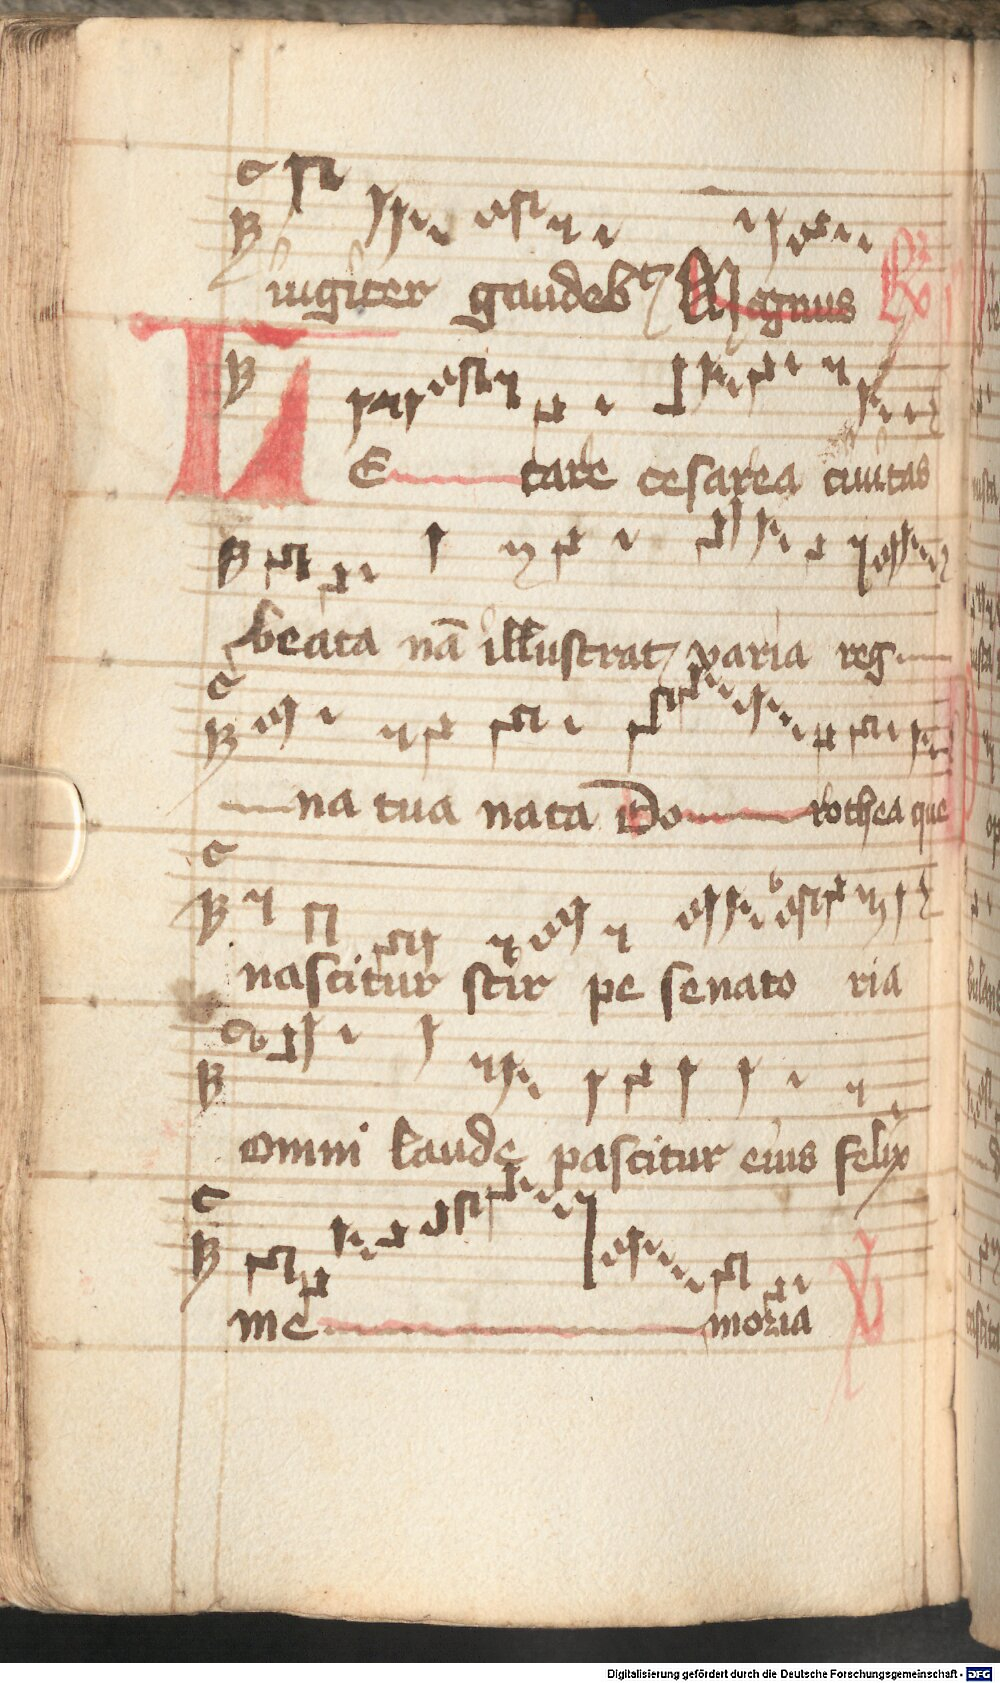 iugiter gaudebt Magnus R
LEtare cesarea ciuitas
beata nā illustrat varia reg
na tua nata Dorothea que
nascitur stir pe senato ria
omni laude pascitur eius felix
memoria V
Digitalisierung gefördert durch die Deutsche Forschungsgemeinschaft - DFG